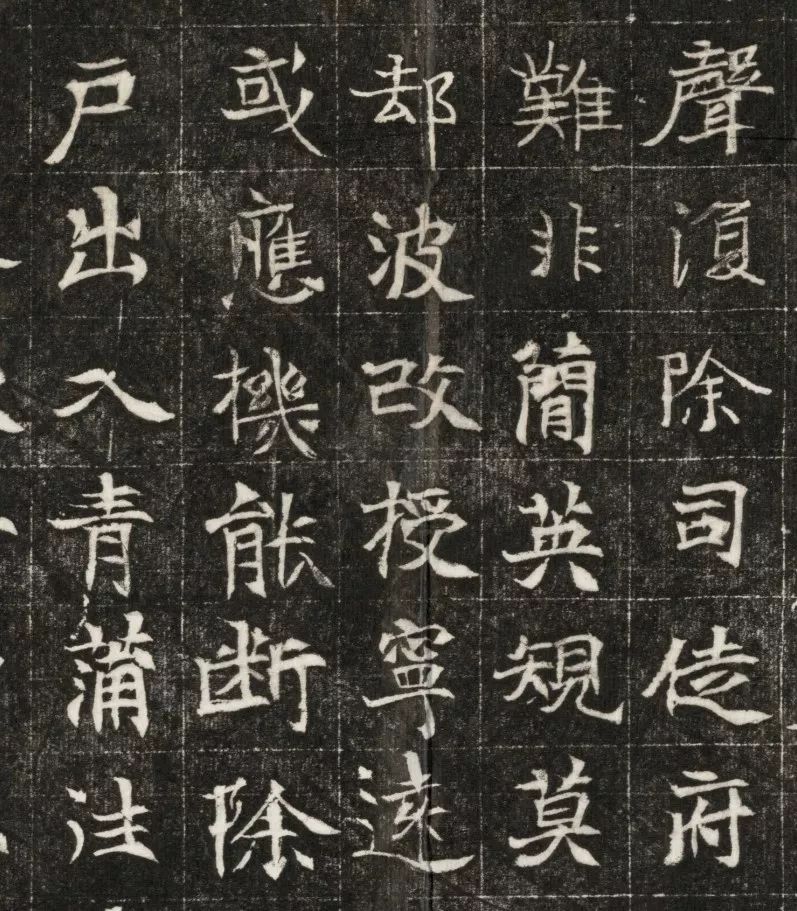 聲復除司徒府
難非簡英規莫
却波改授寧遠
或應機能断除
戶出入青蒲注